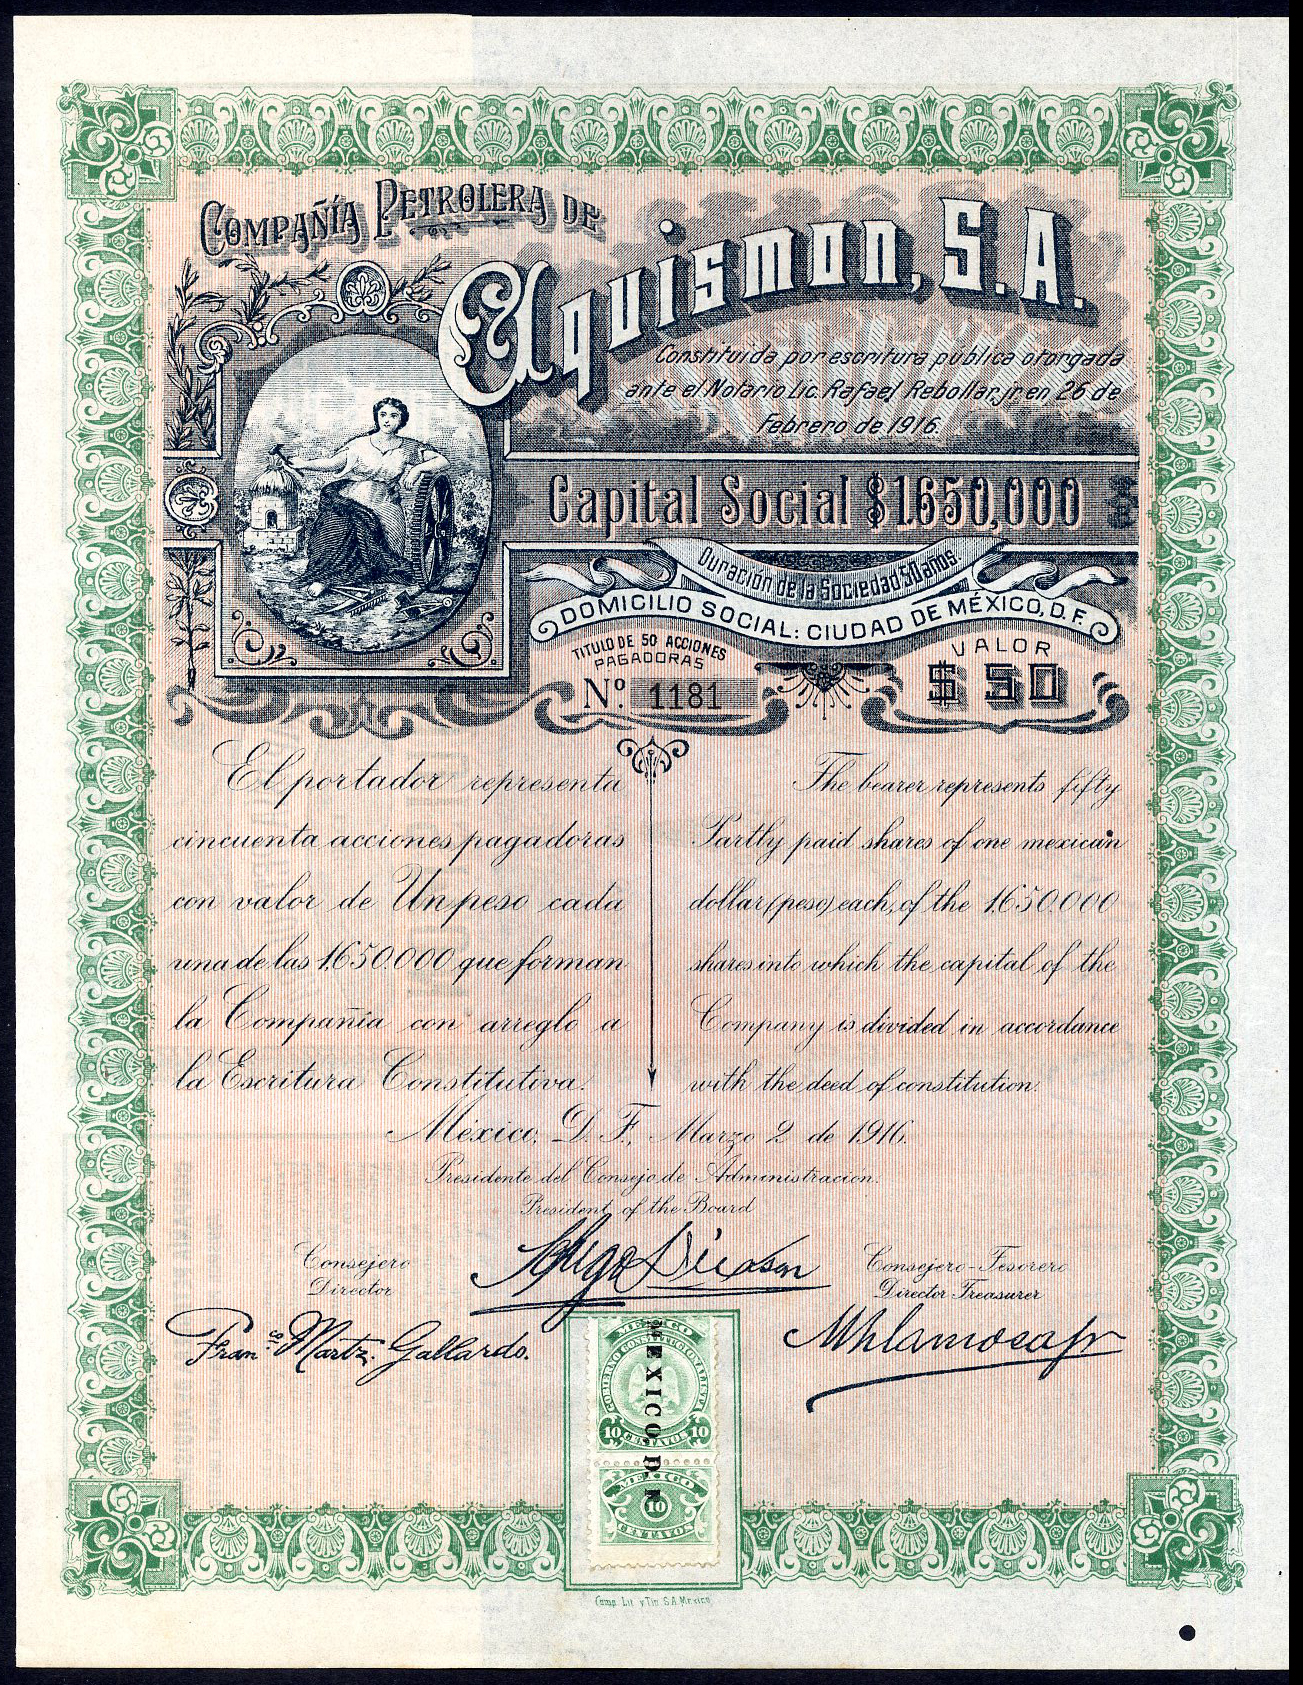 COMPAÑÍA PETROLERA DE
Aquismon, S.A.
Constituida por escritura pública otorgada
ante el Notario Lic. Rafael Rebollar, jr. en 26 de
Febrero de 1916.
Capital Social $1.650,000
Duración de la Sociedad 50 años.
DOMICILIO SOCIAL: CIUDAD DE MÉXICO, D. F.
TITULO DE 50 ACCIONES
PAGADORAS
Nº. 1181
VALOR
$ 50
El portador representa
cincuenta acciones pagadoras
con valor de Un peso cada
una de las 1.650.000 que forman
la Compañía con arreglo a
la Escritura Constitutiva.
The bearer represents fifty
Partly paid shares of one mexican
dollar (peso) each, of the 1.650.000
shares into which the capital of the
Company is divided in accordance
with the deed of constitution.
México, D. F., Marzo 2 de 1916.
Presidente del Consejo de Administración.
President of the Board
Consejero
Director
Consejero-Tesorero
Director Treasurer
Franco Martz. Gallardo.
MEXICO
GOBIERNO CONSTITUCIONALISTA
10 CENTAVOS 10
MEXICO
10
CENTAVOS
MEXICO, D. F.
Comp. Lit. y Tip. S.A. Mexico